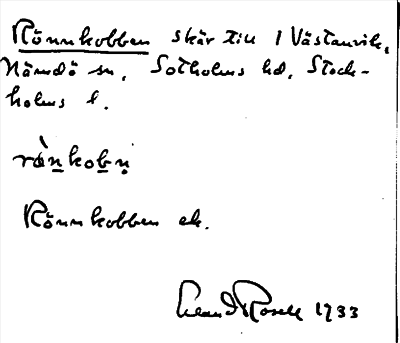 Rönnkobben skär till 1 Västanvik,
Nämdö sn, Sotholms hd, Stock-
holms l.
rònkobn̥
Rönnkobben ek.
1933